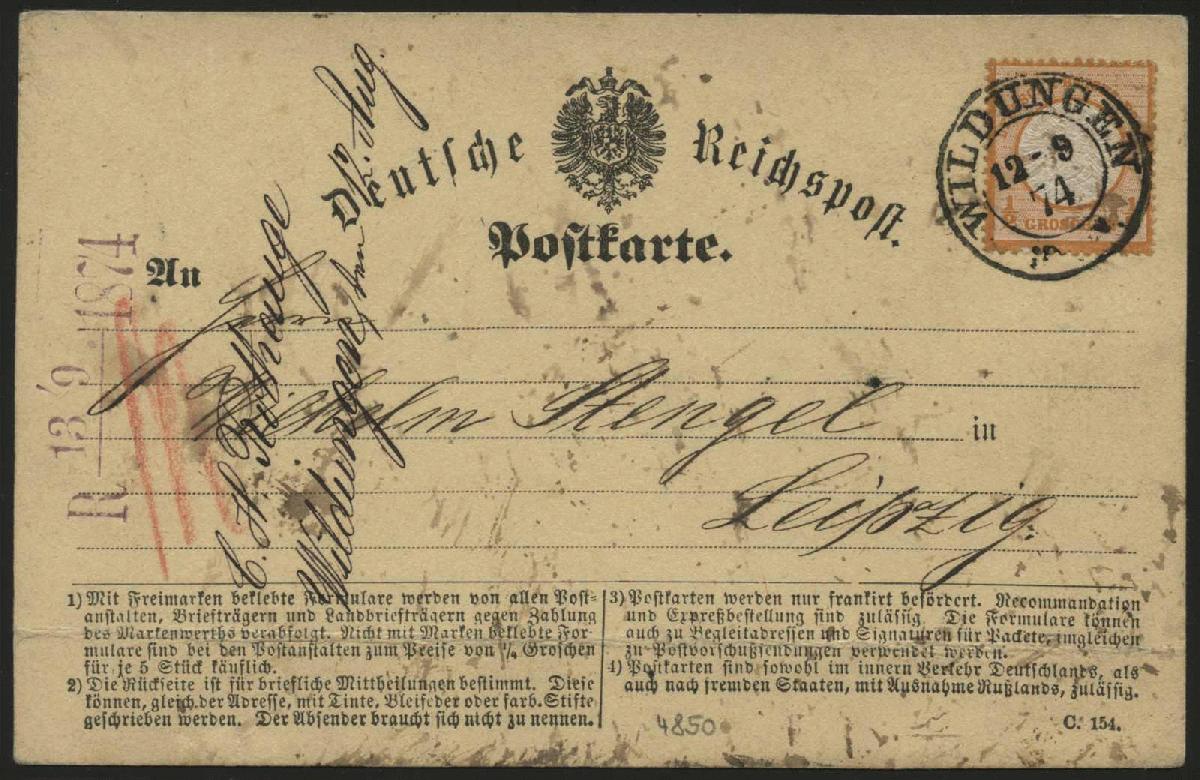 Deutsche Reichspost.
Postkarte.
WILDUNGEN
12-9
74
1/2 GROSCHEN
An
Herrn
Wilhelm Stengel
in
Leipzig
R 13/9 1874
Wildungen den 12. Aug.
1) Mit Freimarken beklebte Formulare werden von allen Post-
anstalten, Briefträgern und Landbriefträgern gegen Zahlung
des Markenwerths verabfolgt. Nicht mit Marken beklebte For-
mulare sind bei den Postanstalten zum Preise von 1/4 Groschen
für je 5 Stück käuflich.
2) Die Rückseite ist für briefliche Mittheilungen bestimmt. Diese
können, gleich der Adresse, mit Tinte, Bleifeder oder farb. Stifte
geschrieben werden. Der Absender braucht sich nicht zu nennen.
3) Postkarten werden nur frankirt befördert. Recommandation
und Expreßbestellung sind zulässig. Die Formulare können
auch zu Begleitadressen und Signaturen für Packete, imgleichen
zu Postvorschußsendungen verwendet werden.
4) Postkarten sind sowohl im innern Verkehr Deutschlands, als
auch nach fremden Staaten, mit Ausnahme Rußlands, zulässig.
C. 154.
4850